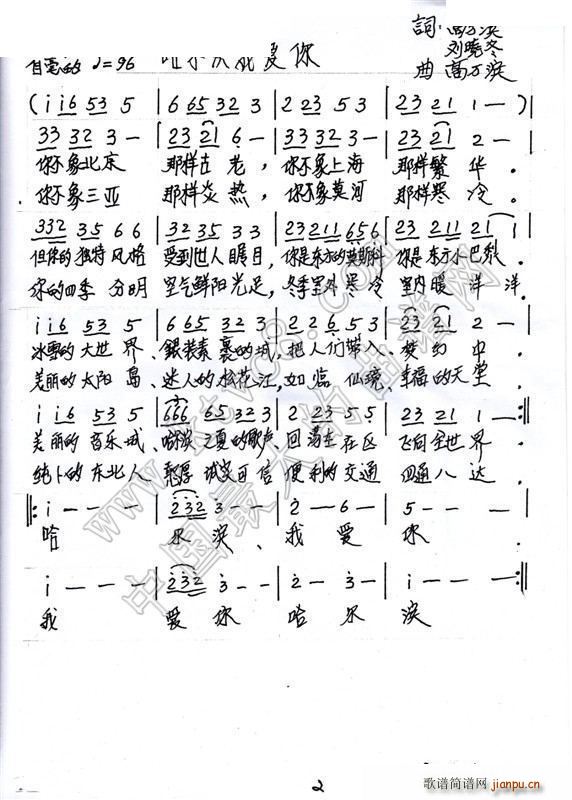 詞 高万滨
刘晓冬
曲 高万滨
自豪的 ♩=96 哈尔滨我爱你
( i i6 53 5 | 6 65 32 3 | 2 23 5 3 | 23 21 1 — )
33 32 3 — | 23 21 6 — | 33 32 3 — | 23 21 2 — |
你不象北京 那样古老, 你不象上海 那样繁华.
你不象三亚 那样炎热, 你不象莫河 那样寒冷.
332 35 6 6 | 32 35 3 3 | 23 211 656 | 23 211 21 |
但你的独特风格 受到世人瞩目, 你是东方的莫斯科 你是东方小巴黎
你的四季 分明 空气鲜阳光足, 冬季室外寒冷 室内暖洋洋.
i i6 53 5 | 6 65 32 3 | 2 2 6 5 3 | 23 21 2 — |
冰雪的大世界、銀装素裹的城, 把人们带入、梦幻中.
美丽的太阳岛、迷人的松花江, 如临仙境、幸福的天堂.
i i6 53 5 | 666 65 32 3 | 2 23 5 5 | 23 21 1 — :||
美丽的音乐城、哈滨之夏的歌声、回荡在 飞向全世界
纯朴的东北人 憨厚诚实可信 便利的交通 四通八达
||: i — — — | 232 3 — — | 2 — 6 — | 5 — — — |
哈 尔滨、 我 爱 你
i — — — | 232 3 — — | 2 — 3 — | i — — — :||
我 爱你 哈尔 滨
www.ktvc8.com
中国最大的曲谱网
2
歌谱简谱网
jianpu.cn